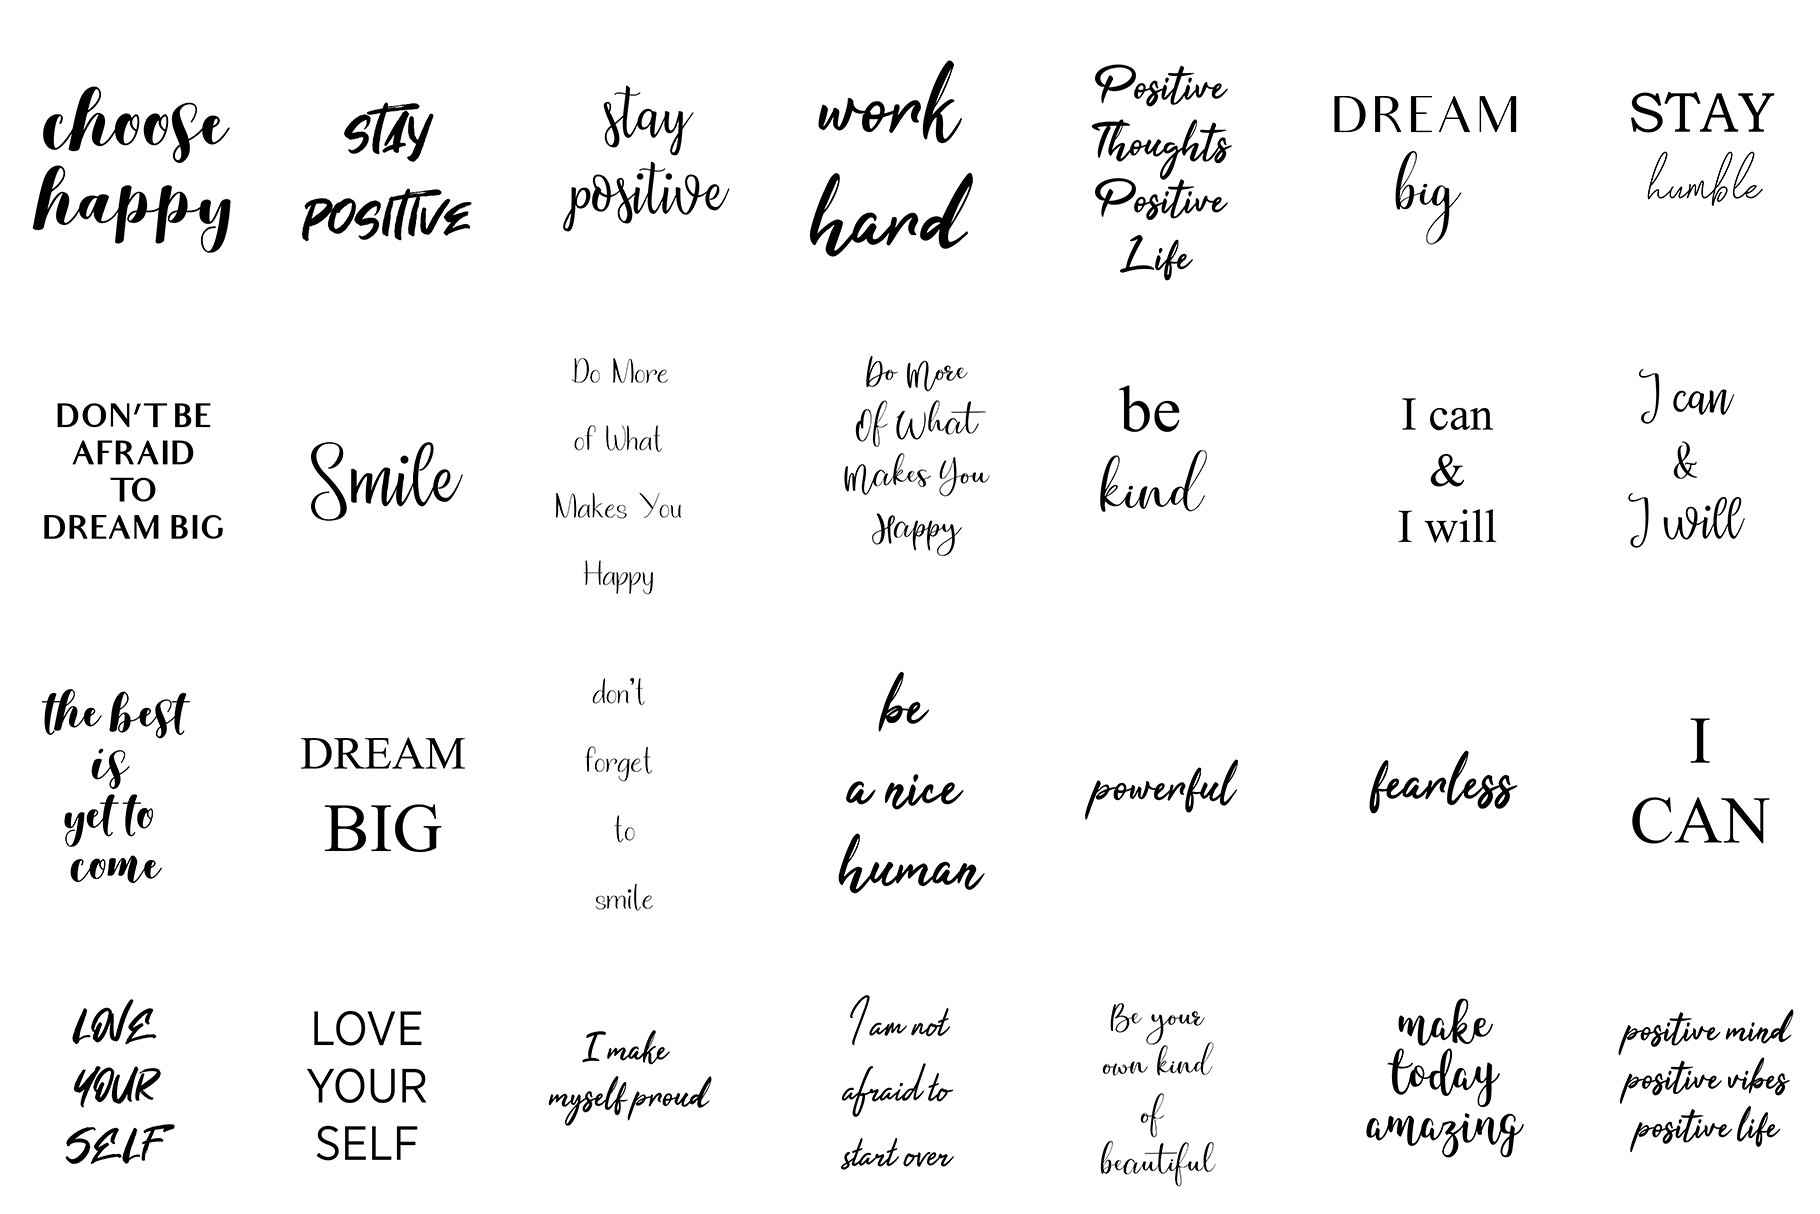 choose
happy
STAY
POSITIVE
stay
positive
work
hard
Positive
Thoughts
Positive
Life
DREAM
big
STAY
humble
DON'T BE
AFRAID
TO
DREAM BIG
Smile
Do More
of What
Makes You
Happy
Do More
Of What
Makes You
Happy
be
kind
I can
&
I will
I can
&
I will
the best
is
yet to
come
DREAM
BIG
don't
forget
to
smile
be
a nice
human
powerful
fearless
I
CAN
LOVE
YOUR
SELF
LOVE
YOUR
SELF
I make
myself proud
I am not
afraid to
start over
Be your
own kind
of
beautiful
make
today
amazing
positive mind
positive vibes
positive life